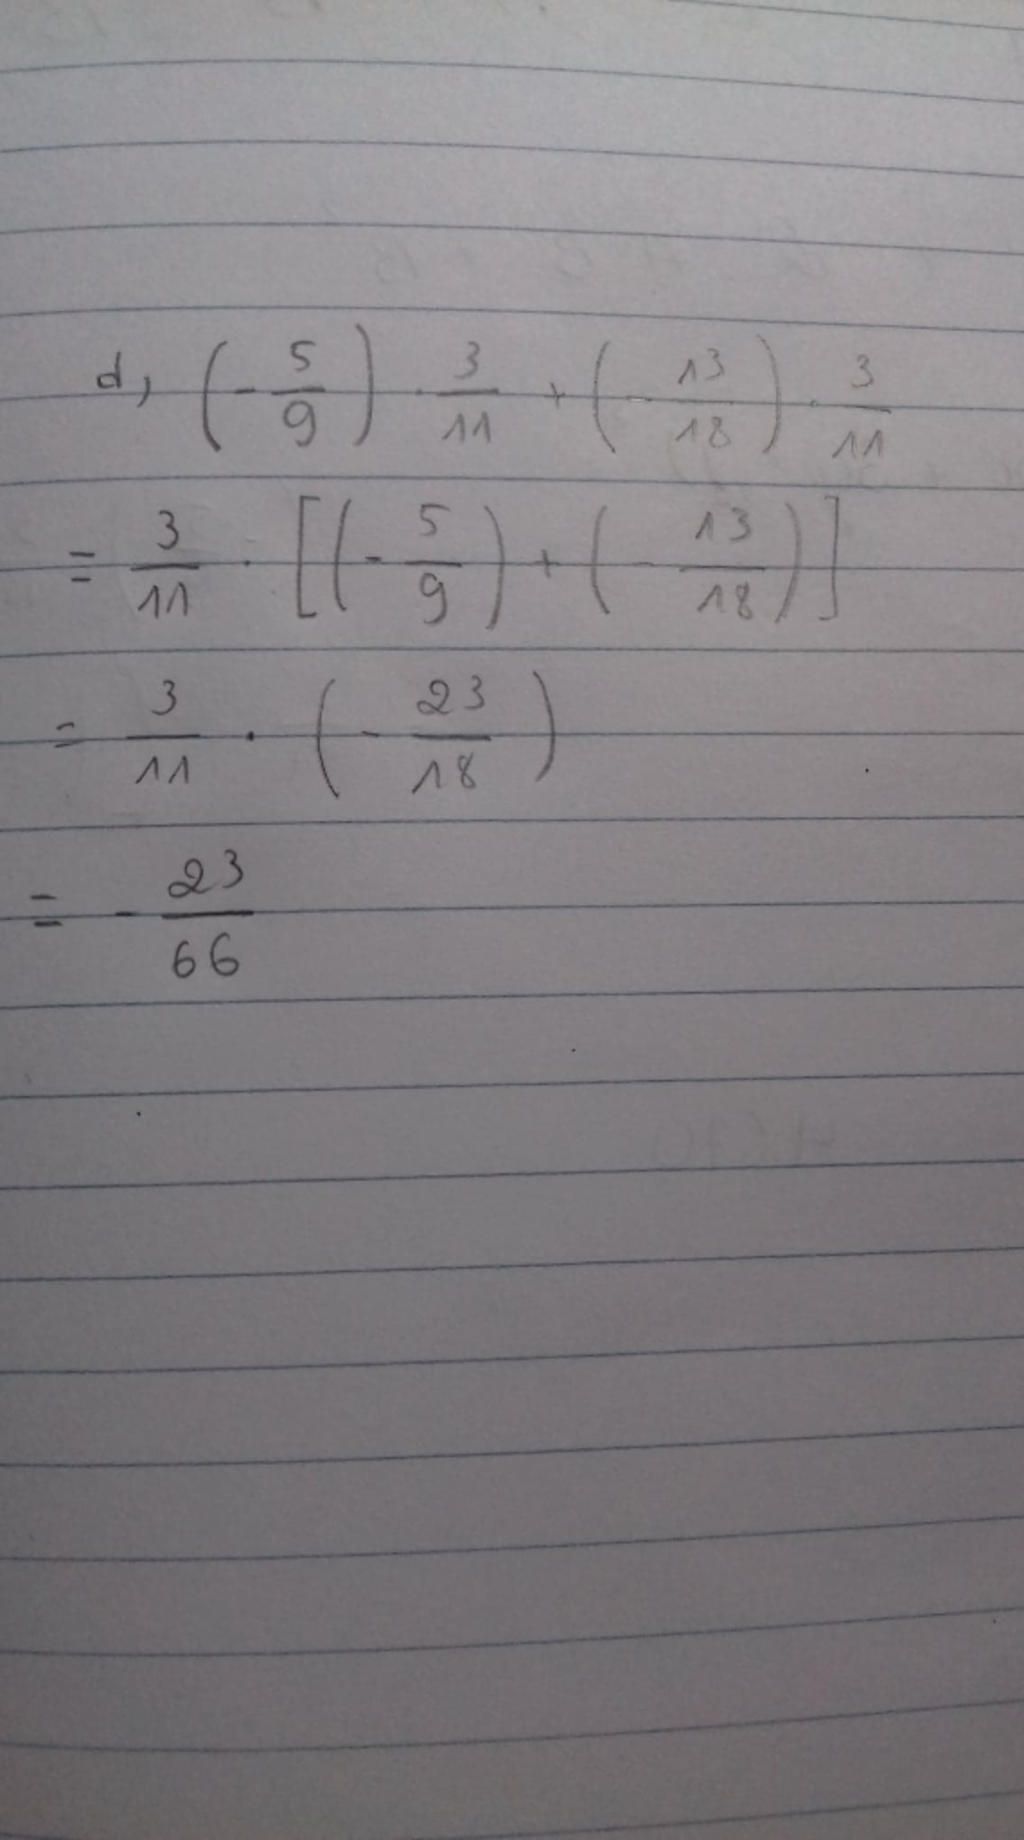 d, (- 5/9) . 3/11 + (- 13/18) . 3/11
= 3/11 . [(- 5/9) + (- 13/18)]
= 3/11 . (- 23/18)
= - 23/66